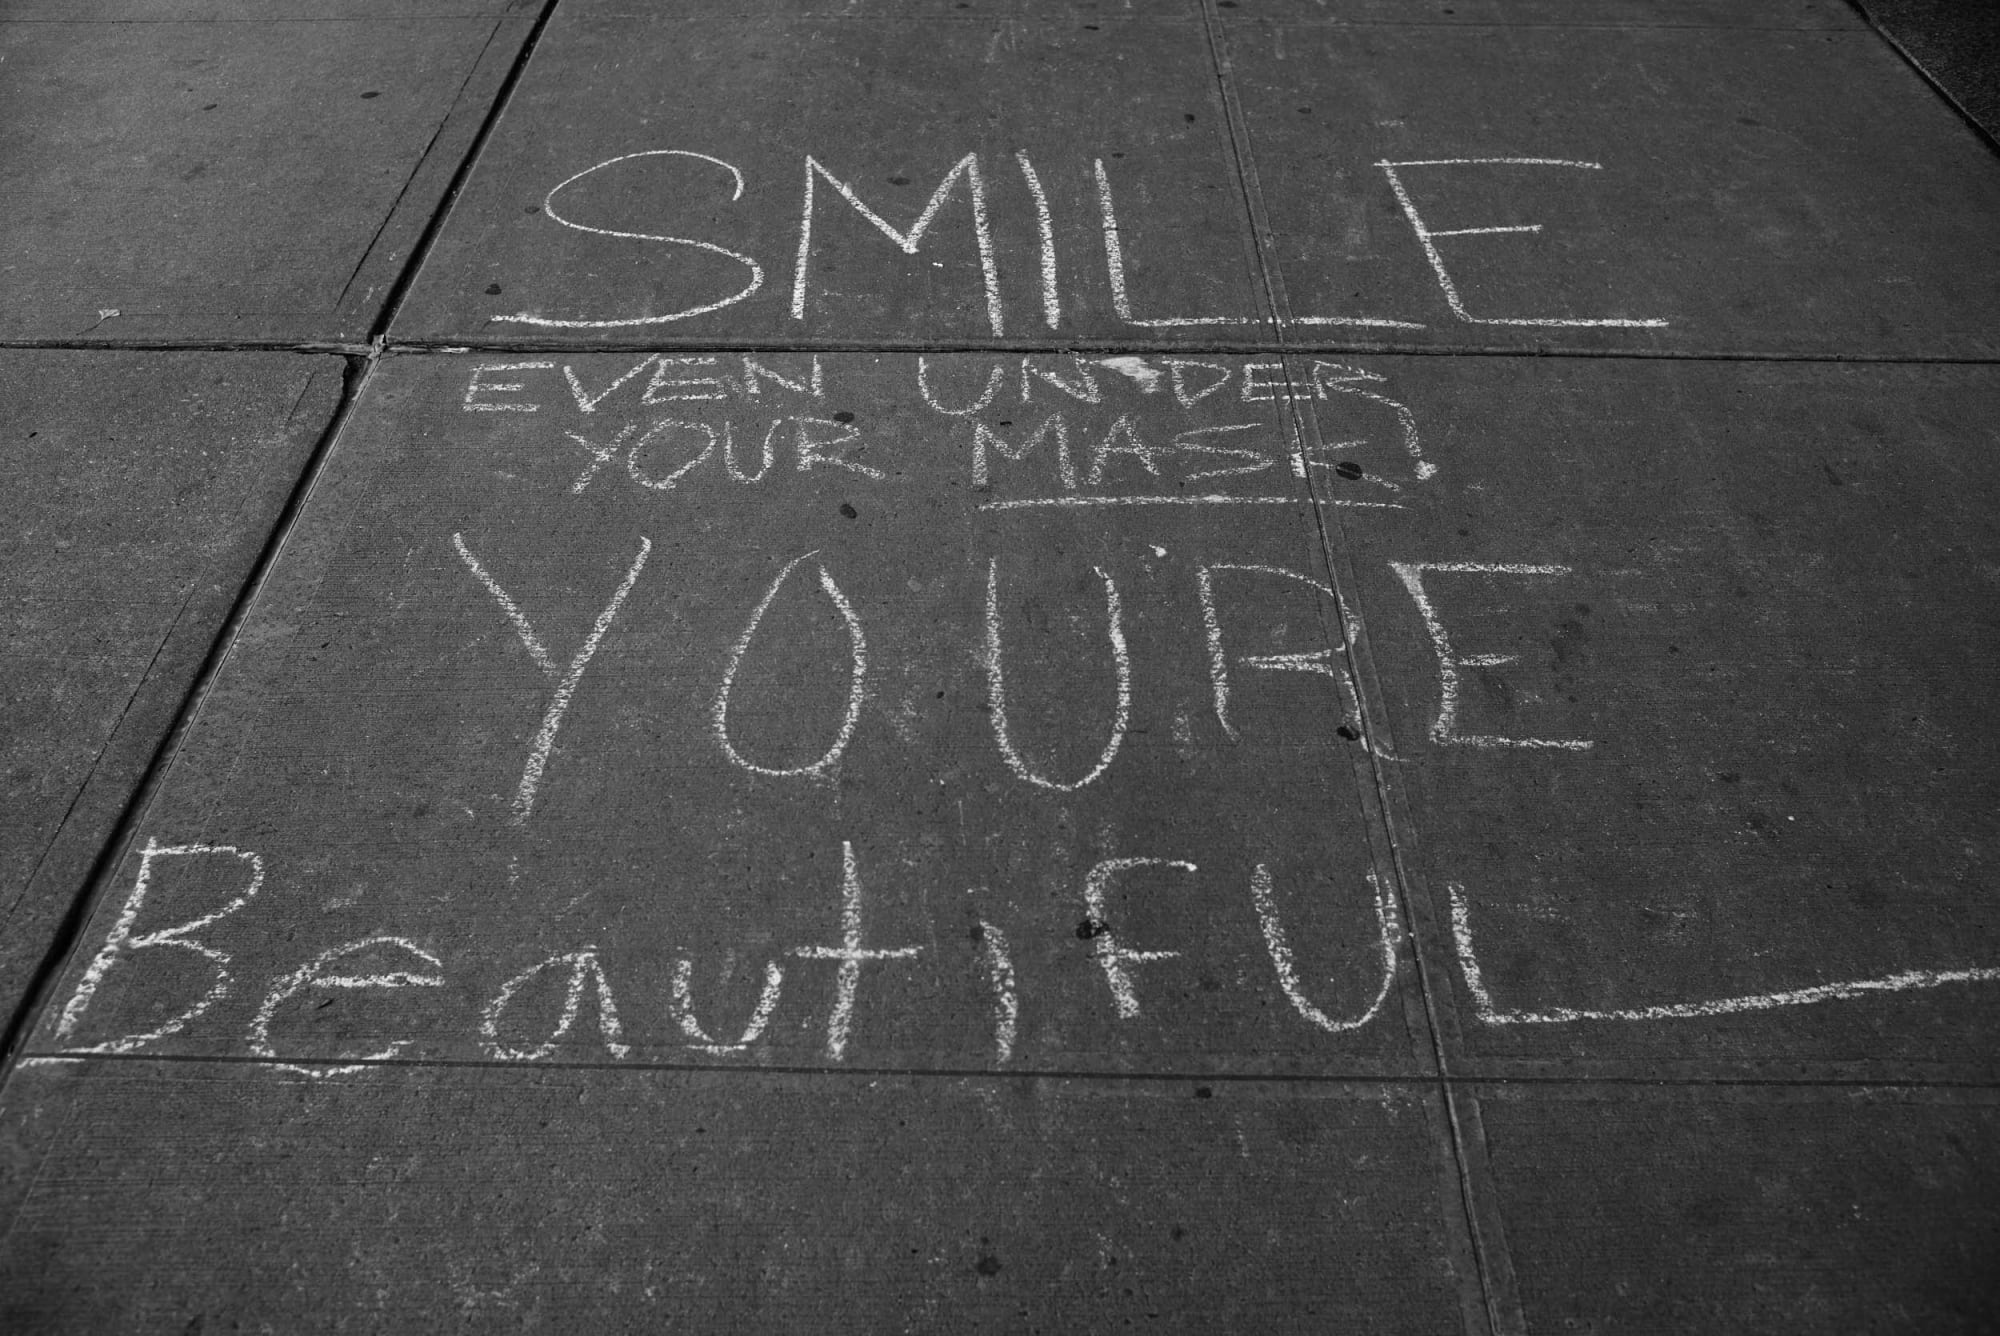 SMILE
EVEN UNDER
YOUR MASK!
YOURE
BeautifUL